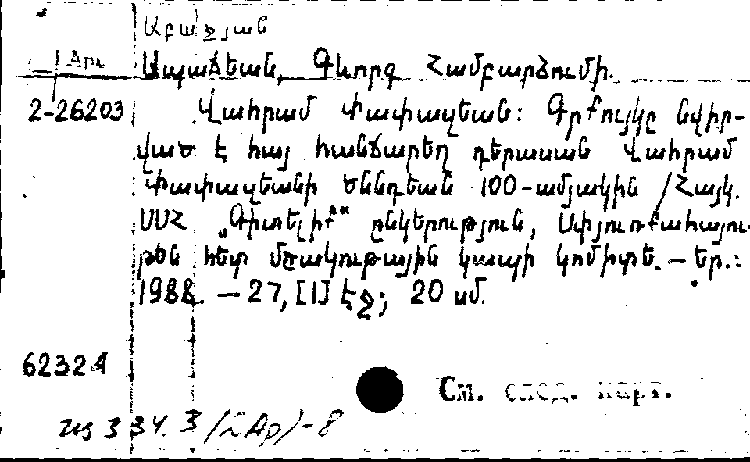 Աբաջյան
Արև
Ապաճեան, Գևորգ Համբարձումի.
2-26203 Վահրամ Փափազեան: Գրքույկը նվիր-
ված է հայ հանճարեղ դերասան Վահրամ
Փափազեանի ծննդեան 100-ամյակին /Հայկ.
ՍՍՀ „Գիտելիք“ ընկերություն, Սփյուռքահայու-
թեն հետ մշակութային կապի կոմիտե. — Եր.:
1988. — 27, [1] էջ; 20 սմ.
62324
См. след. карт.
334.3 (2Ар)-8